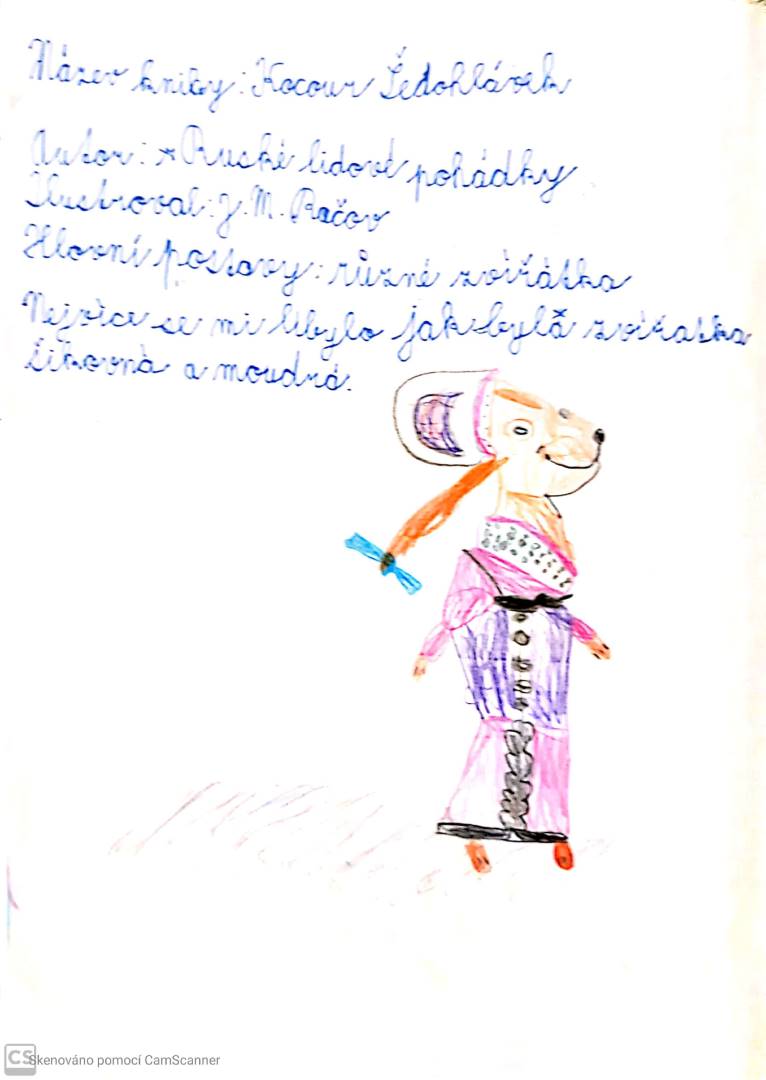 Název knihy: Kocour Šedohlávek
Autor: * Ruské lidové pohádky
Ilustroval: J. M. Račov
Hlavní postavy: různé zvířátka
Nejvíce se mi líbylo jak byla zvířatka
šikovná a moudrá.
CS Skenováno pomocí CamScanner